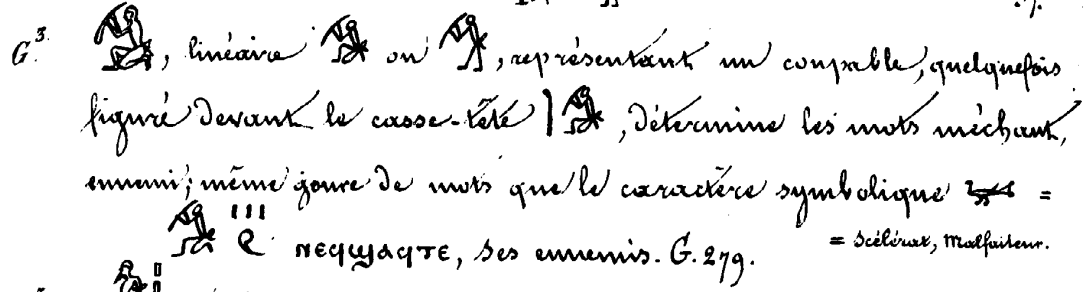 G³. , linéaire ou , représentant un coupable, quelquefois
figuré devant le casse-tête , détermine les mots méchant,
ennemi; même genre de mots que le caractère symbolique =
= Scélérat, Malfaiteur.
ⲛⲉϥϣⲁϥⲧⲉ, ses ennemis. G. 279.